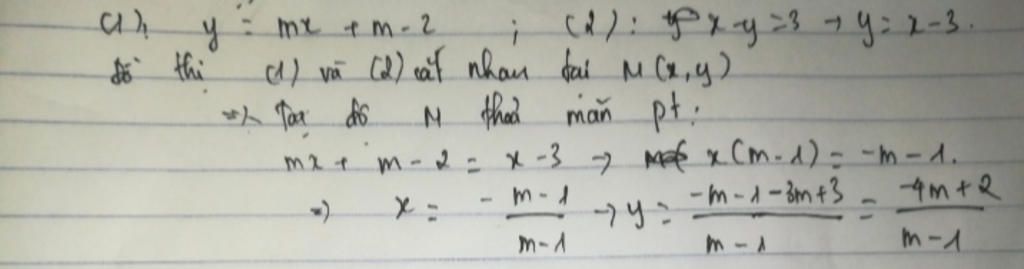 (1): y = mx + m - 2 ; (2): x - y = 3 → y = x - 3.
đồ thị (1) và (2) cắt nhau tại M(x, y)
=> Toạ độ M thoả mãn pt:
mx + m - 2 = x - 3 → x(m - 1) = -m - 1.
=> x = \frac{-m - 1}{m - 1} → y = \frac{-m - 1 - 3m + 3}{m - 1} = \frac{-4m + 2}{m - 1}